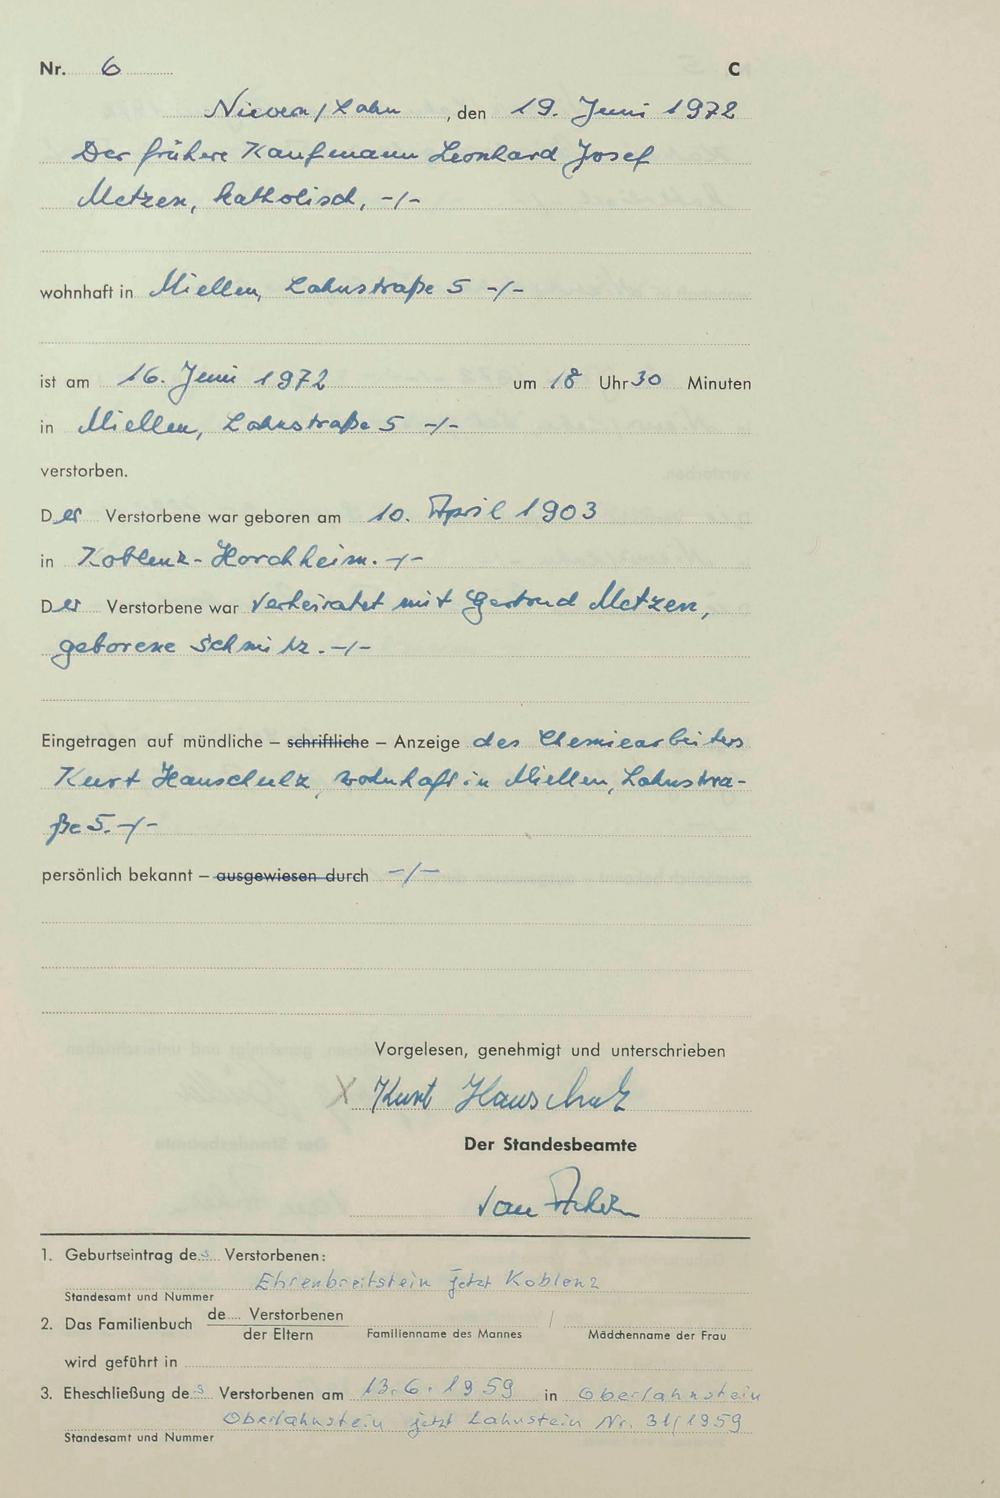 Nr. 6 C
Nievern/Lahn, den 19. Juni 1972
Der frühere Kaufmann Leonhard Josef
Metzen, katholisch, -/-
wohnhaft in Miellen, Lahnstraße 5 -/-
ist am 16. Juni 1972 um 18 Uhr 30 Minuten
in Miellen, Lahnstraße 5 -/-
verstorben.
Der Verstorbene war geboren am 10. April 1903
in Koblenz-Horchheim. -/-
Der Verstorbene war verheiratet mit Gertrud Metzen,
geborene Schmitz. -/-
Eingetragen auf mündliche – schriftliche – Anzeige des Chemiearbeiters
Kurt Hauschulz, wohnhaft in Miellen, Lahnstra-
ße 5. -/-
persönlich bekannt – ausgewiesen durch -/-
Vorgelesen, genehmigt und unterschrieben
X Kurt Hauschulz
Der Standesbeamte
1. Geburtseintrag des Verstorbenen:
Ehrenbreitstein jetzt Koblenz
Standesamt und Nummer
2. Das Familienbuch de Verstorbenen
der Eltern Familienname des Mannes / Mädchenname der Frau
wird geführt in
3. Eheschließung des Verstorbenen am 13.6.1959 in Oberlahnstein
Oberlahnstein jetzt Lahnstein Nr. 31/1959
Standesamt und Nummer